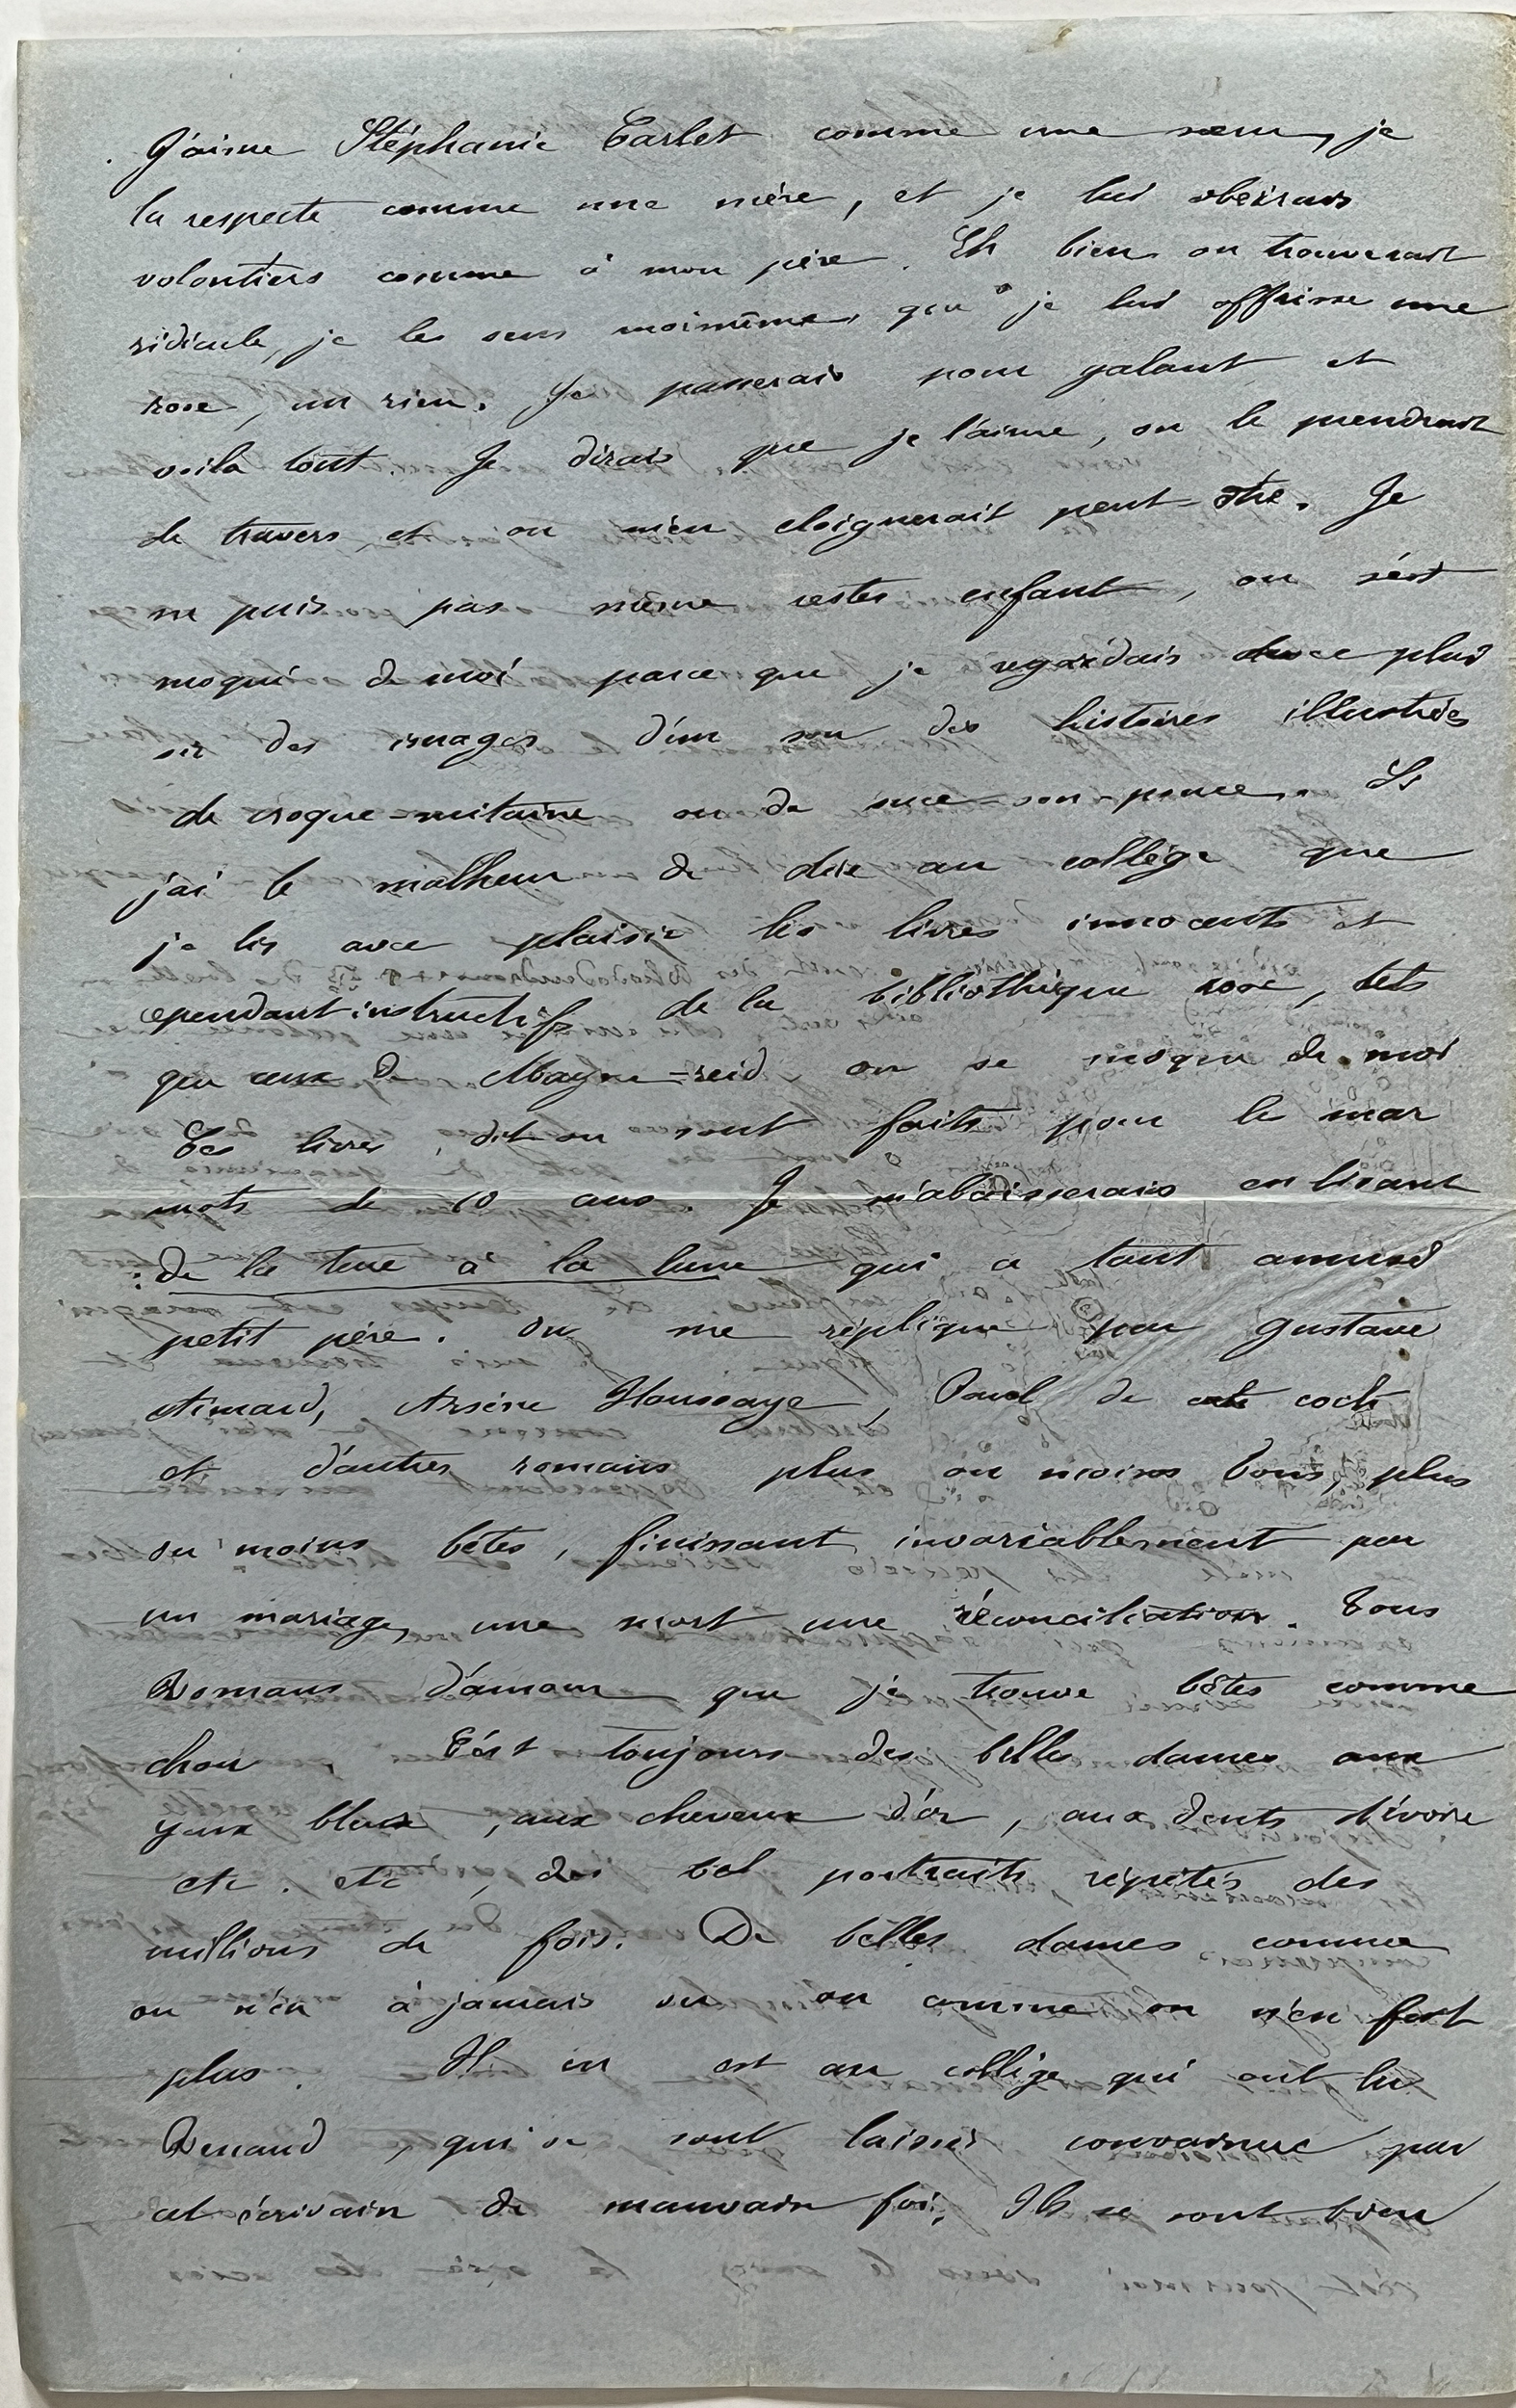 J'aime Stéphanie Carlet comme une sœur, je
la respecte comme une mère, et je lui obéirais
volontiers comme à mon père. Eh bien on trouverait
ridicule, je le sens moi même, que je lui offrisse une
rose, un rien. Je passerais pour galant et
voila tout. Je dirais que je l'aime, on le prendrait
de travers, et on m'en eloignerait peut-être. Je
ne puis pas même rester enfant, on s'est
moqué de moi parce que je regardais avec plai
sir des images d'un sou des histoires illustrées
de croque-mitaine ou de suce-son-pouce. Si
j'ai le malheur de dire au collège que
je lis avec plaisir les livres innocents et
cependant instructifs de la bibliothèque rose, tels
que ceux de Mayne-reid, on se moque de moi
Ces livres, dit-on sont faits pour le mar
mots de 10 ans. Je m'abaisserais en lisant
: de la terre à la lune qui a tant amusé
petit père. On me réplique par Gustave
Aimard, Arsène Houssaye, Paul de cock
et d'autres romans plus ou moins bons, plus
ou moins bêtes, finissant invariablement par
un mariage, une mort une réconciliation. Tous
Romans d'amour que je trouve bêtes comme
chou. C'est toujours des belles dames aux
yeux bleus, aux cheveux d'or, aux dents d'ivoire
etc. etc, des bel portraits répétés des
millions de fois. De belles dames comme
on n'en à jamais vu ou comme on n'en fait
plus. Il en est au collège qui ont lu
Renaud, qui se sont laissés convaincre par
cet écrivain de mauvaise foi. Ils se sont bien